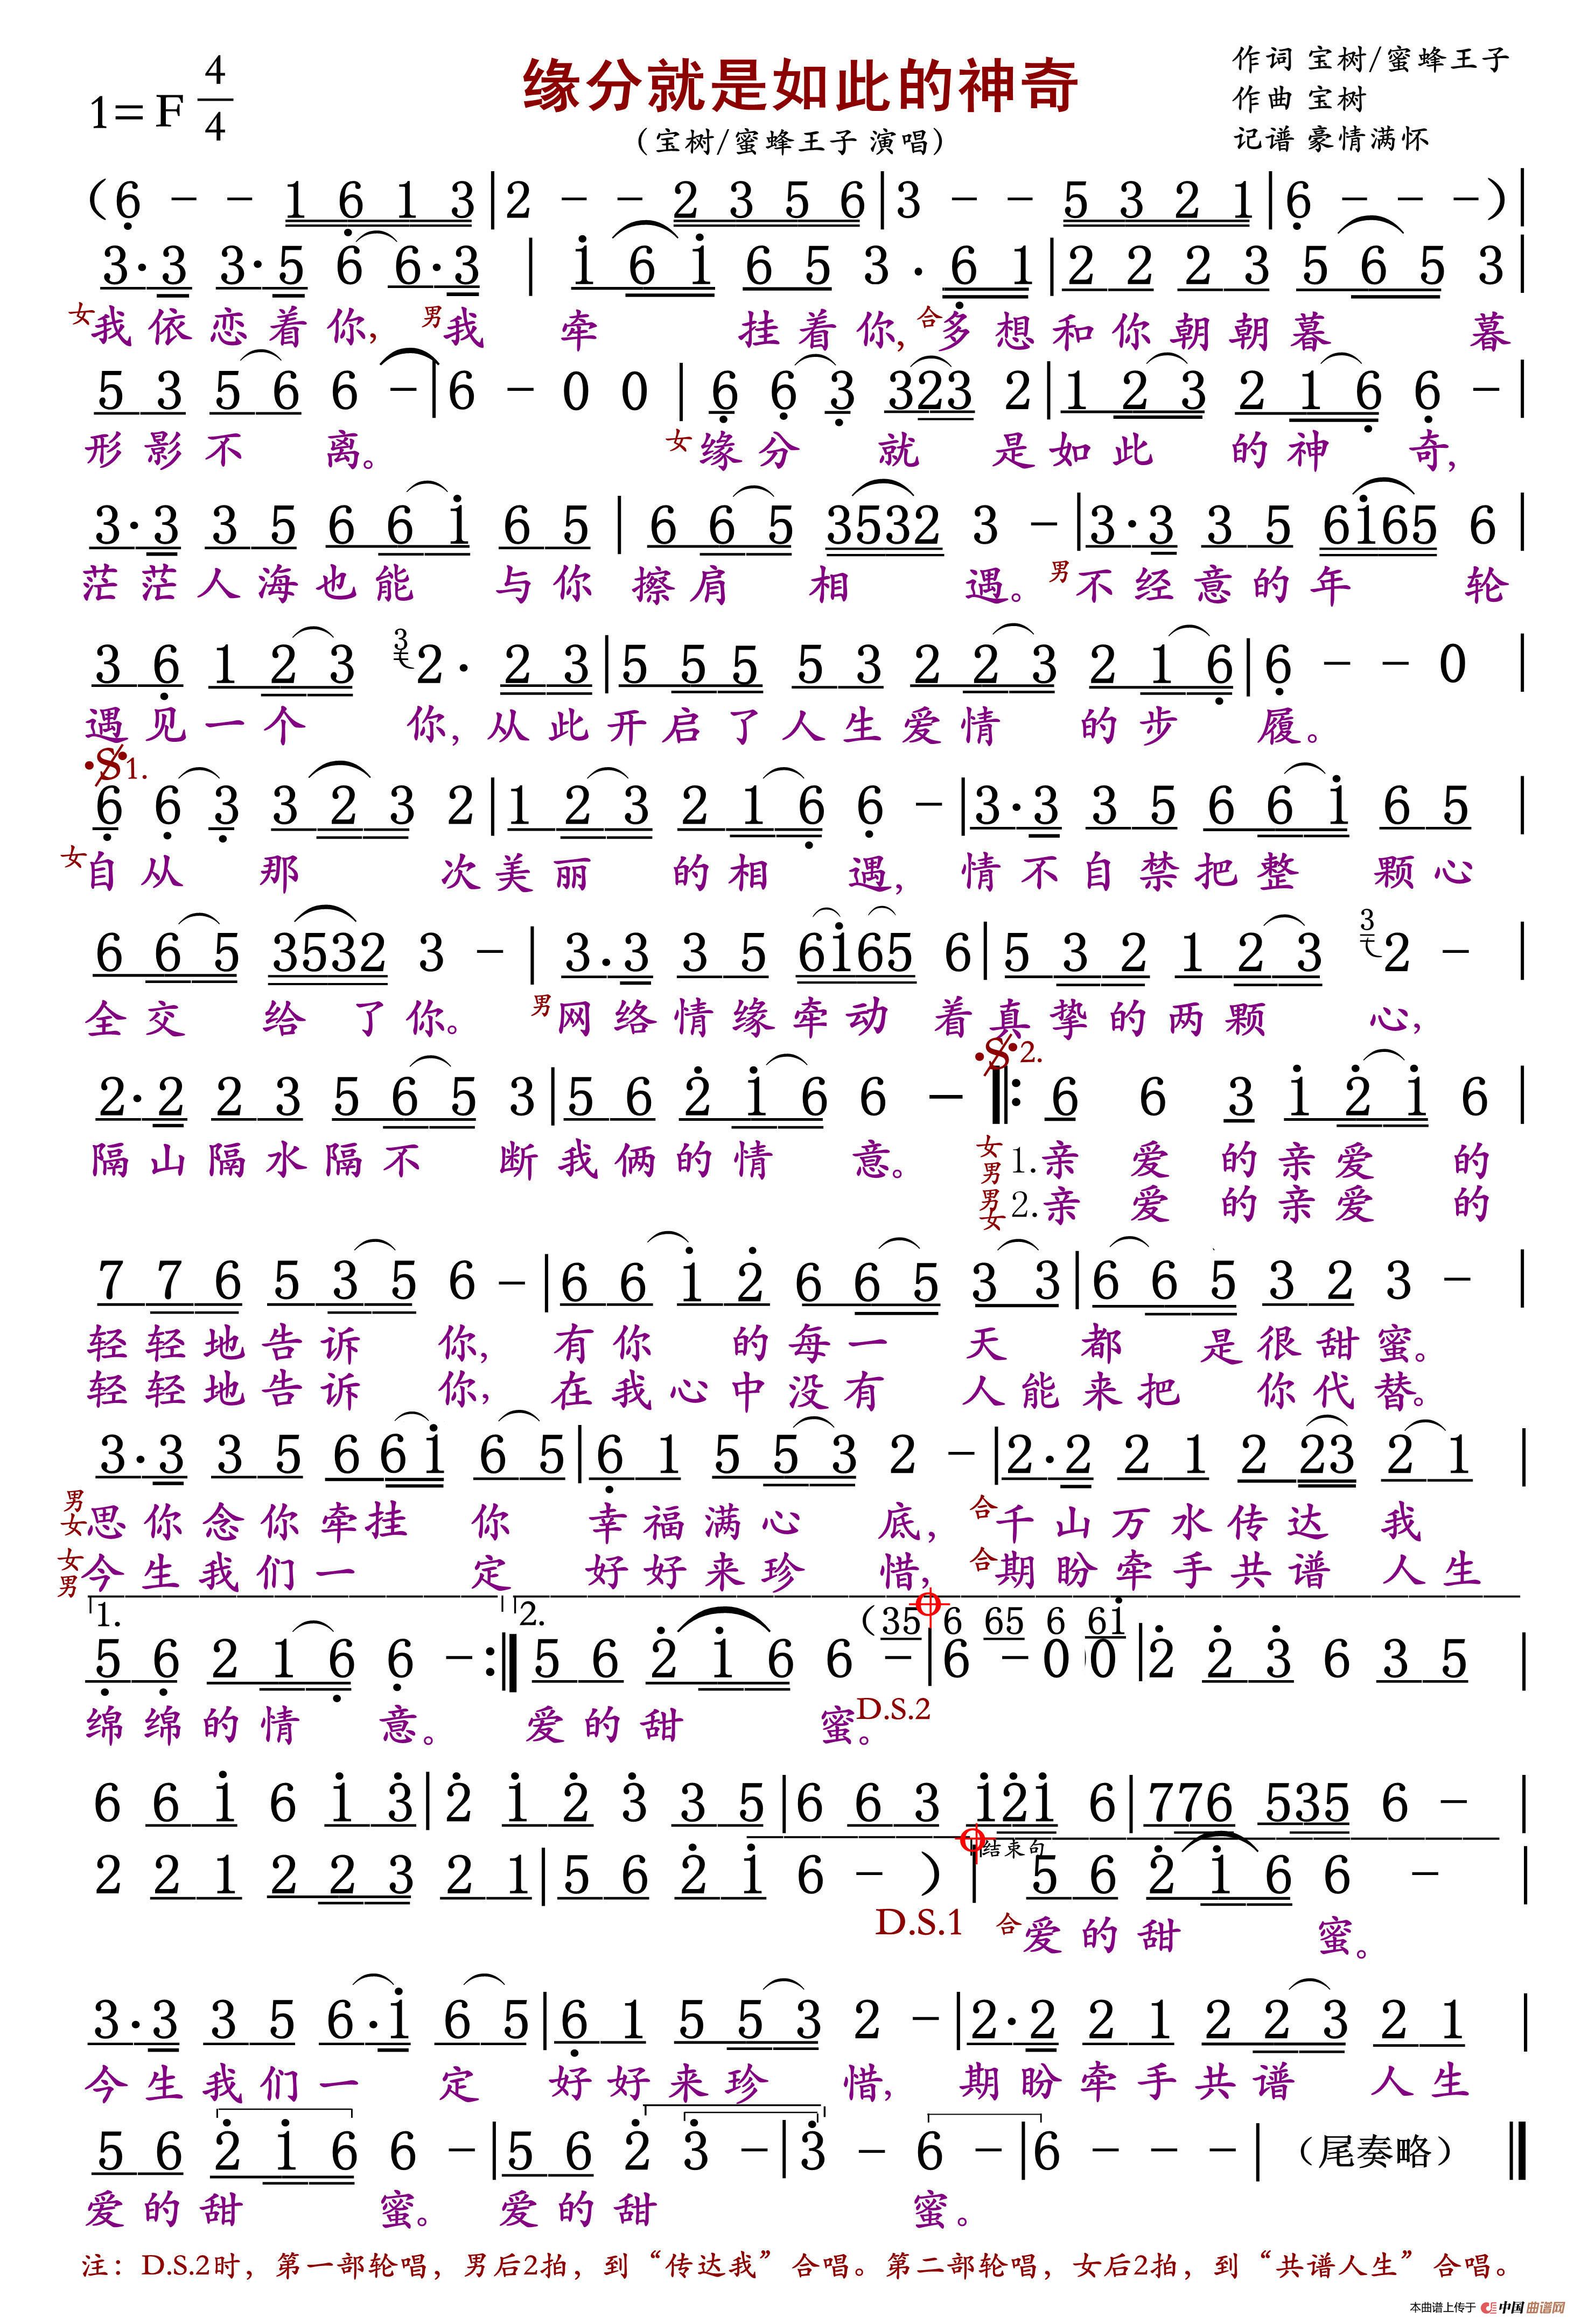 缘分就是如此的神奇
1=F 4/4
(宝树/蜜蜂王子 演唱)
作词 宝树/蜜蜂王子
作曲 宝树
记谱 豪情满怀
(6 - - 1 6 1 3|2 - - 2 3 5 6|3 - - 5 3 2 1|6 - - -)|
3·3 3·5 6 6·3 | i 6 i 6 5 3 · 6 1|2 2 2 3 5 6 5 3|
女我依恋着你,男我牵挂着你,合多想和你朝朝暮暮
5 3 5 6 6 -|6 - 0 0 | 6 6 3 323 2|1 2 3 2 1 6 6 -|
形影不离。女缘分就是如此的神奇,
3·3 3 5 6 6 i 6 5 | 6 6 5 3532 3 -|3·3 3 5 6i65 6|
茫茫人海也能与你擦肩相遇。男不经意的年轮
3 6 1 2 3 3 2· 2 3|5 5 5 5 3 2 2 3 2 1 6|6 - - 0 |
遇见一个你,从此开启了人生爱情的步履。
𝄋1.
6 6 3 3 2 3 2|1 2 3 2 1 6 6 -|3·3 3 5 6 6 i 6 5 |
女自从那次美丽的相遇,情不自禁把整颗心
6 6 5 3532 3 - | 3·3 3 5 6i65 6|5 3 2 1 2 3 3 2 - |
全交给了你。男网络情缘牵动着真挚的两颗心,
𝄋2.
2·2 2 3 5 6 5 3|5 6 2 i 6 6 - ‖: 6 6 3 i 2 i 6 |
隔山隔水隔不断我俩的情意。女男1.亲爱的亲爱的
男女2.亲爱的亲爱的
7 7 6 5 3 5 6 -|6 6 i 2 6 6 5 3 3|6 6 5 3 2 3 - |
轻轻地告诉你,有你的每一天都是很甜蜜。
轻轻地告诉你,在我心中没有人能来把你代替。
3·3 3 5 6 6 i 6 5|6 1 5 5 3 2 -|2·2 2 1 2 23 2 1 |
男女思你念你牵挂你幸福满心底,合千山万水传达我
女男今生我们一定好好来珍惜,合期盼牵手共谱人生
1. 2. (35 6 65 6 6i
5 6 2 1 6 6 - :‖ 5 6 2 i 6 6 -|6 - 0 0|2 2 3 6 3 5 |
绵绵的情意。爱的甜蜜。D.S.2
6 6 i 6 i 3|2 i 2 3 3 5|6 6 3 i2i 6|776 535 6 - |
结束句
2 2 1 2 2 3 2 1|5 6 2 i 6 - )| 5 6 2 i 6 6 - |
D.S.1 合爱的甜蜜。
3·3 3 5 6·i 6 5|6 1 5 5 3 2 -|2·2 2 1 2 2 3 2 1 |
今生我们一定好好来珍惜,期盼牵手共谱人生
5 6 2 i 6 6 -|5 6 2 3 -|3 - 6 -|6 - - -|(尾奏略)‖
爱的甜蜜。爱的甜蜜。
注:D.S.2时,第一部轮唱,男后2拍,到“传达我”合唱。第二部轮唱,女后2拍,到“共谱人生”合唱。
本曲谱上传于 中国曲谱网